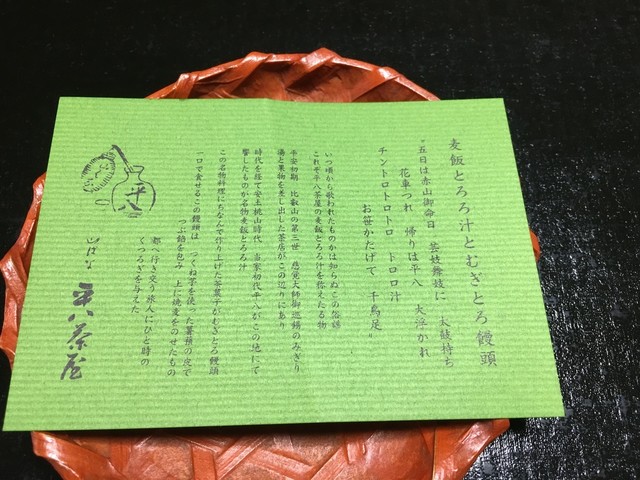 麦飯とろろ汁とむぎとろ饅頭
"五日は赤山御命日 芸妓舞妓に 太鼓持ち
花車つれ 帰りは平八 大浮かれ
チントロトロトロ トロロ汁
お笹かたげて 千鳥足"
いつ頃から歌われたものかは知らぬこの俗謡
これぞ平八茶屋の麦飯とろろ汁を称えたる物
平安初期 比叡山の第三世 慈覚大師御巡錫のみぎり
湯と果物を差し出した茶店がこの辺りにあり
時代を経て安土桃山時代 当家初代平八がこの地にて
饗したものが名物麦飯とろろ汁
この名物料理にちなんで作り上げた茶菓子がむぎとろ饅頭
一口で食せるこの饅頭は つくね芋を使った薯蕷の皮で
つぶ餡を包み 上に焼麦をのせたもの
都へ行き交う旅人にひと時の
くつろぎを与えた
山ばな 平八茶屋
平八